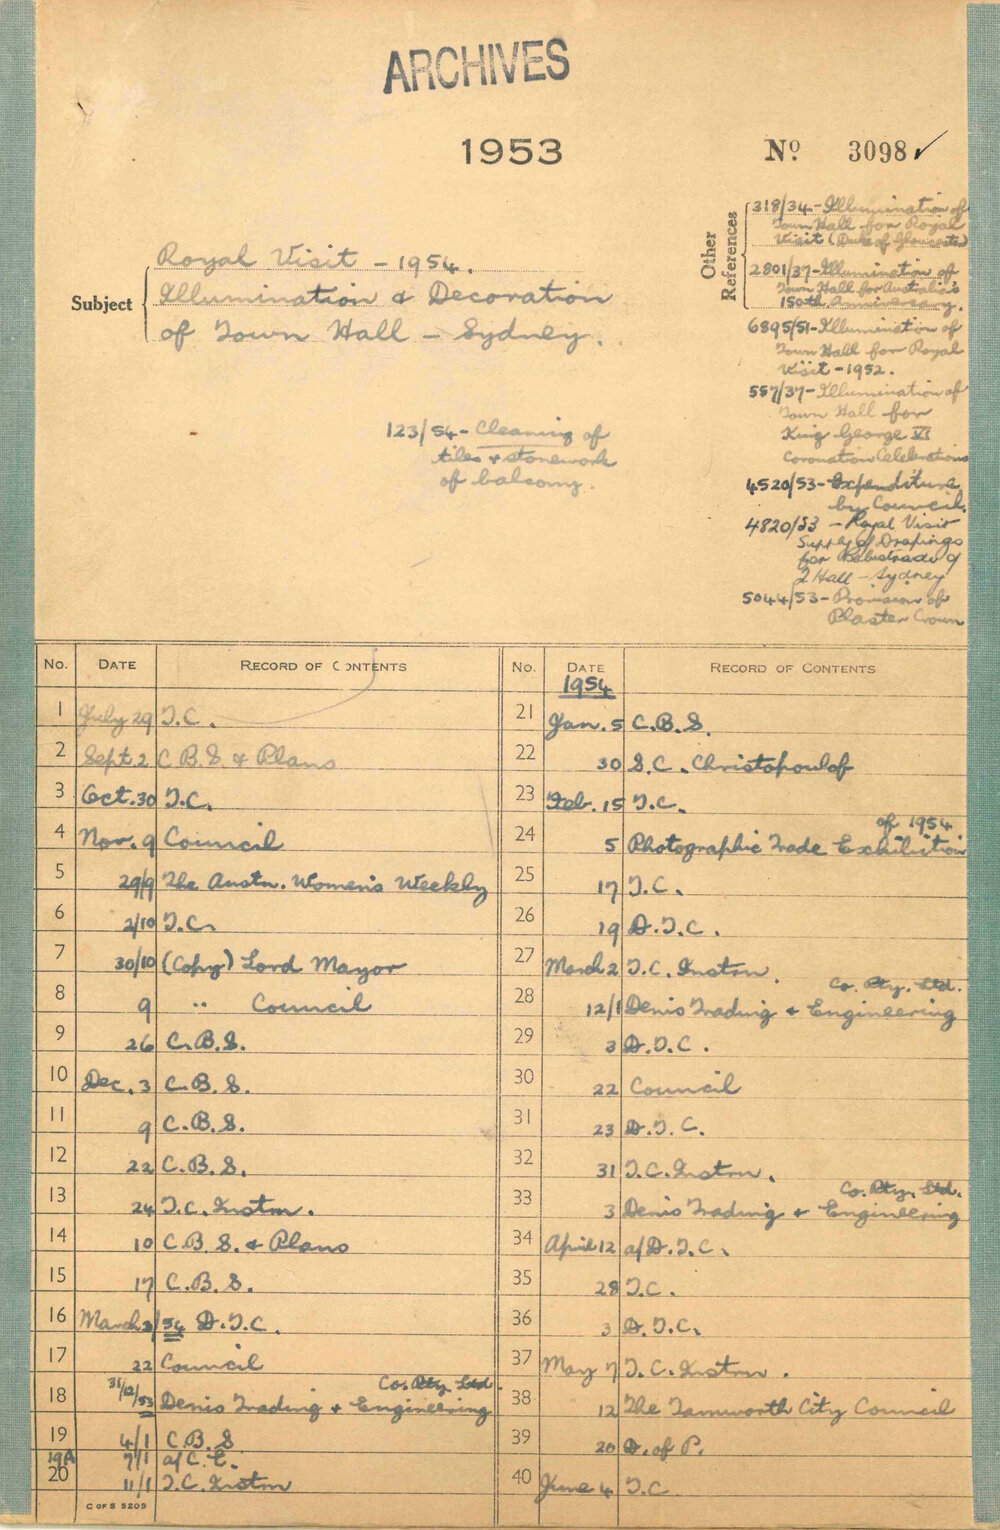 ARCHIVES
1953
Nº 3098 ✓
Subject
Royal Visit - 1954.
Illumination & Decoration
of Town Hall - Sydney.
123/54 - Cleaning of
tiles & stonework
of balcony.
Other
References
318/34 - Illumination of
Town Hall for Royal
Visit (Duke of Gloucester)
2801/37 - Illumination of
Town Hall for Australia's
150th Anniversary.
6895/51 - Illumination of
Town Hall for Royal
Visit - 1952.
557/37 - Illumination of
Town Hall for
King George VI
Coronation Celebrations
4520/53 - Expenditure
by Council.
4820/53 - Royal Visit
Supply of Drapings
for Balustrade of
T. Hall - Sydney
5044/53 - Provision of
Plaster Crown
No. DATE RECORD OF CONTENTS
1 July 29 T.C.
2 Sept. 2 C.B.S. & Plans
3 Oct. 30 T.C.
4 Nov. 9 Council
5 29/9 The Austn. Women's Weekly
6 2/10 T.C.
7 30/10 (Copy) Lord Mayor
8 9 " Council
9 26 C.B.S.
10 Dec. 3 C.B.S.
11 9 C.B.S.
12 22 C.B.S.
13 24 T.C. Instn.
14 10 C.B.S. & Plans
15 17 C.B.S.
16 March 2/54 D.T.C.
17 22 Council
18 31/12/53 Denis Trading & Engineering Co. Pty. Ltd.
19 4/1 C.B.S
19A 7/1 a/C.E.
20 11/1 T.C. Instn
C OF S 5209
No. DATE RECORD OF CONTENTS
1954
21 Jan. 5 C.B.S.
22 30 S.C. Christopoulof
23 Feb. 15 T.C.
24 5 Photographic Trade Exhibition of 1954
25 17 T.C.
26 19 D.T.C.
27 March 2 T.C. Instrn.
28 12/1 Denis Trading & Engineering Co. Pty. Ltd.
29 3 D.T.C.
30 22 Council
31 23 D.T.C.
32 31 T.C. Instrn.
33 3 Denis Trading & Engineering Co. Pty. Ltd.
34 April 12 a/D.T.C.
35 28 T.C.
36 3 D.T.C.
37 May 7 T.C. Instrn.
38 12 The Tamworth City Council
39 20 D. of P.
40 June 4 T.C